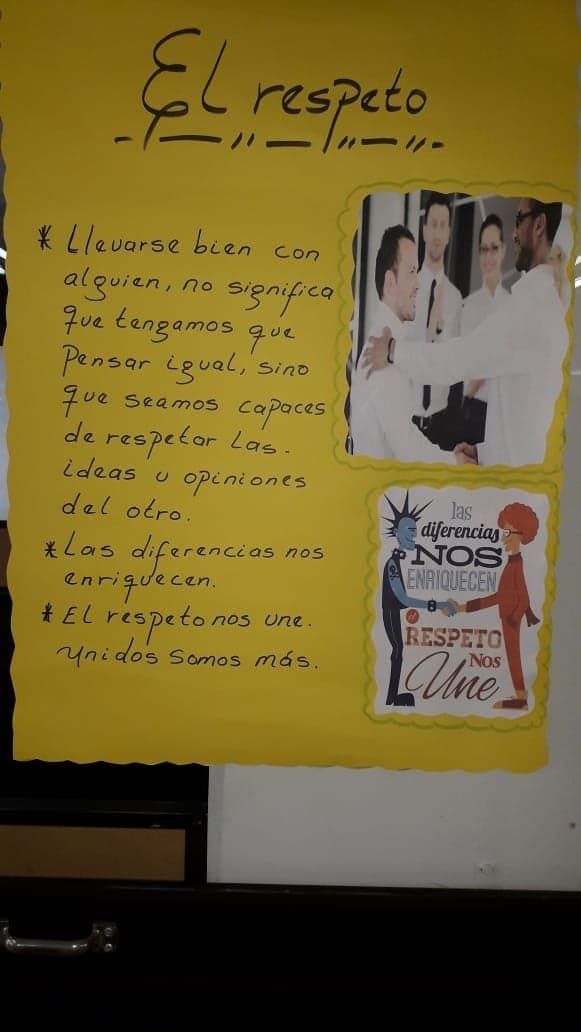 El respeto
* Llevarse bien con
alguien, no significa
que tengamos que
Pensar igual, sino
que seamos capaces
de respetar las.
ideas u opiniones
del otro.
* Las diferencias nos
enriquecen.
* El respeto nos une.
Unidos somos más.
las
diferencias
NOS
ENRIQUECEN
el
RESPETO
NOS
Une